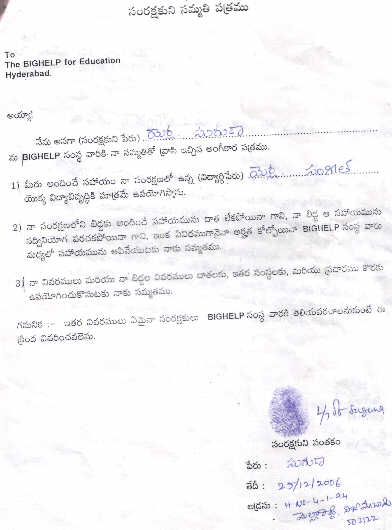 సంరక్షకుని సమ్మతి పత్రము
To
The BIGHELP for Education
Hyderabad.
అయ్యా!
నేను అనగా (సంరక్షకుని పేరు) సుగుణ
మీ BIGHELP సంస్థ వారికి నా సమ్మతితో వ్రాసి ఇచ్చిన అంగీకార పత్రము.
1) మీరు అందించే సహాయం నా సంరక్షణలో ఉన్న (విద్యార్థిపేరు)
యొక్క విద్యాభివృద్ధికి మాత్రమే ఉపయోగిస్తాను.
2) నా సంరక్షణలోని బిడ్డకు అందించే సహాయమును దాత లేకపోయినా గాని, నా బిడ్డ ఆ సహాయమును
సద్వినియోగ పరచకపోయినా గాని, ఇంక ఏవిధముగానైనా అర్హత కోల్పోయినా BIGHELP సంస్థ వారు
మధ్యలో సహాయమును ఆపివేయుటకు నాకు సమ్మతము.
3) నా వివరములు మరియు నా బిడ్డల వివరములు దాతలకు, ఇతర సంస్థలకు, మరియు ప్రచారము కొరకు
ఉపయోగించుకొనుటకు నాకు సమ్మతము.
గమనిక :- ఇతర వివరములు ఏమైనా సంరక్షకులు BIGHELP సంస్థ వారికి తెలియపరచాలనుకుంటే ఈ
క్రింద వివరించవలెను.
సంరక్షకుని సంతకం
పేరు : సుగుణ
తేదీ : 29/12/2006
అడ్రసు : H NO-4-1-94
502122